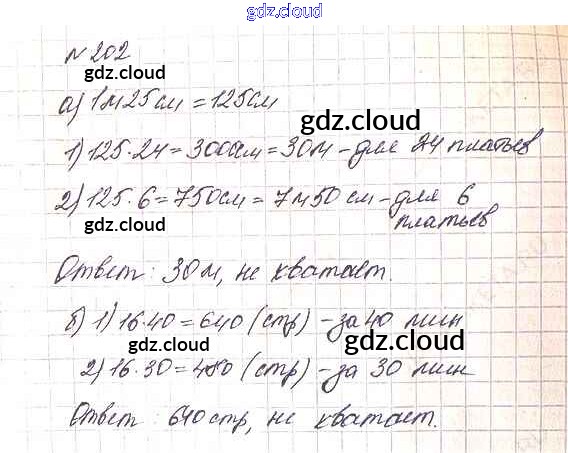 gdz.cloud
№202
gdz.cloud
а) 1м25см = 125см
gdz.cloud
1) 125·24 = 3000см = 30м - для 24 платьев
2) 125·6 = 750см = 7м50см - для 6
платьев
gdz.cloud
Ответ: 30м, не хватает.
gdz.cloud
б) 1) 16·40 = 640 (стр) - за 40 мин
gdz.cloud
2) 16·30 = 480 (стр) - за 30 мин
Ответ: 640стр, не хватает.
gdz.cloud